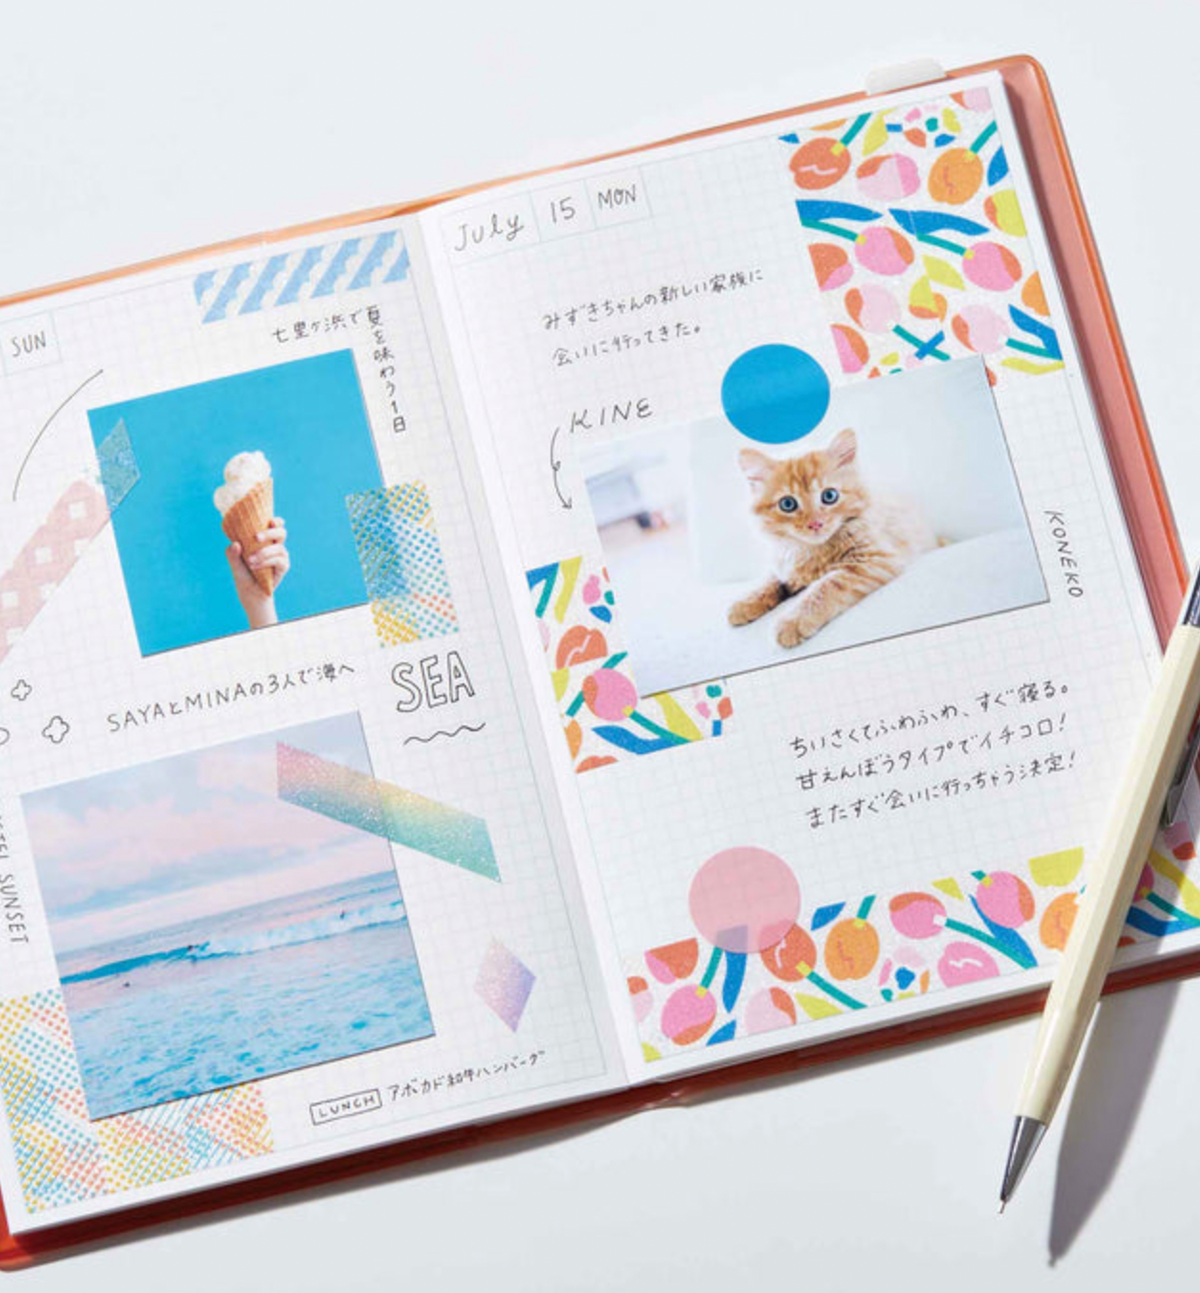 SUN
七里ヶ浜で夏を味わう1日
SAYAとMINAの3人で海へ
SEA
SUNSET
LUNCH アボカド和牛ハンバーグ
July 15 MON
みずきちゃんの新しい家族に
会いに行ってきた。
KINE
KONEKO
ちいさくてふわふわ、すぐ寝る。
甘えんぼうタイプでイチコロ!
またすぐ会いに行っちゃう決定!